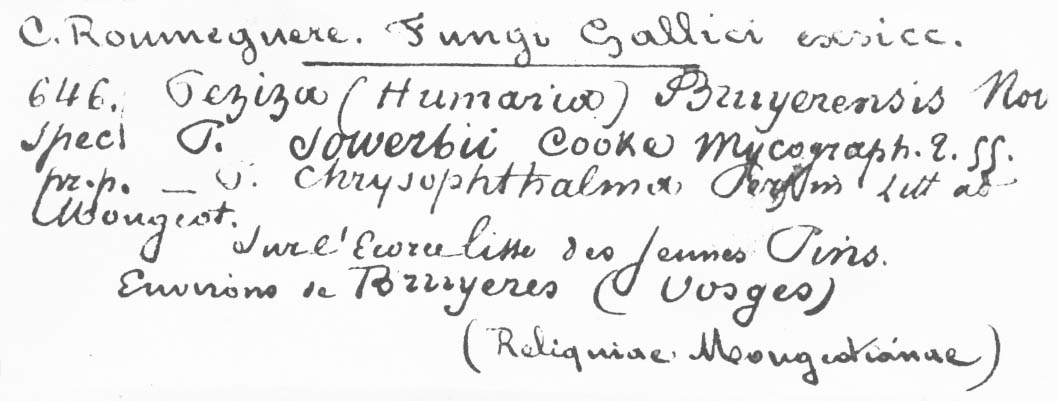 C. Roumeguere. Fungi Gallici exsicc.
646. Peziza (Humaria) Bruyerensis Nov
Spec! P. Sowerbii Cooke Mycograph. 2. ff.
pr. p. _ P. Chrysophthalma Pers in Litt ad
Mougeot.
Sur l'Ecorce lisse des jeunes Pins.
Environs de Bruyeres (Vosges)
(Reliquiae Mougeotianae)